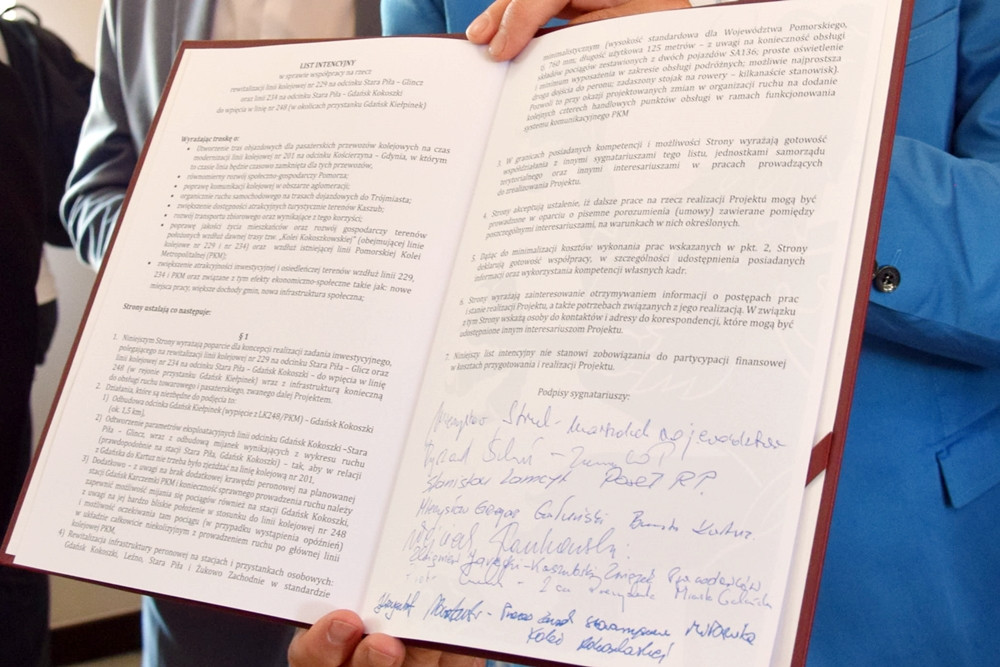 LIST INTENCYJNY
w sprawie współpracy na rzecz
rewitalizacji linii kolejowej nr 229 na odcinku Stara Piła – Glincz
oraz linii 234 na odcinku Stara Piła - Gdańsk Kokoszki
do wpięcia w linię nr 248 (w okolicach przystanku Gdańsk Kiełpinek)
Wyrażając troskę o:
• Utworzenie tras objazdowych dla pasażerskich przewozów kolejowych na czas
modernizacji linii kolejowej nr 201 na odcinku Kościerzyna – Gdynia, w którym
to czasie linia będzie czasowo zamknięta dla tych przewozów,
• równomierny rozwój społeczno-gospodarczy Pomorza;
• poprawę komunikacji kolejowej w obszarze aglomeracji;
• ograniczenie ruchu samochodowego na trasach dojazdowych do Trójmiasta;
• zwiększenie dostępności atrakcyjnych turystycznie terenów Kaszub;
• rozwój transportu zbiorowego oraz wynikające z tego korzyści;
• poprawę jakości życia mieszkańców oraz rozwój gospodarczy terenów
położonych wzdłuż dawnej trasy tzw. „Kolei Kokoszkowskiej” (obejmującej linie
kolejowe nr 229 i nr 234) oraz wzdłuż istniejącej linii Pomorskiej Kolei
Metropolitalnej (PKM);
• zwiększenie atrakcyjności inwestycyjnej i osiedleńczej terenów wzdłuż linii 229,
234 i PKM oraz związane z tym efekty ekonomiczno-społeczne takie jak: nowe
miejsca pracy, większe dochody gmin, nowa infrastruktura społeczna;
Strony ustalają co następuje:
§ 1
1. Niniejszym Strony wyrażają poparcie dla koncepcji realizacji zadania inwestycyjnego,
polegającego na rewitalizacji linii kolejowej nr 229 na odcinku Stara Piła – Glicz oraz
linii kolejowej nr 234 na odcinku Stara Piła - Gdańsk Kokoszki – do wpięcia w linię
248 (w rejonie przystanku Gdańsk Kiełpinek) wraz z infrastrukturą konieczną
do obsługi ruchu towarowego i pasażerskiego, zwanego dalej Projektem.
2. Działania, które są niezbędne do podjęcia to:
1) Odbudowa odcinka Gdańsk Kiełpinek (wypięcie z LK248/PKM) – Gdańsk Kokoszki
(ok. 1,5 km),
2) Odtworzenie parametrów eksploatacyjnych linii odcinku Gdańsk Kokoszki –Stara
Piła – Glincz, wraz z odbudową mijanek wynikających z wykresu ruchu
(prawdopodobnie na stacji Stara Piła, Gdańsk Kokoszki) – tak, aby w relacji
z Gdańska do Kartuz nie trzeba było zjeżdżać na linię kolejową nr 201,
3) Dodatkowo – z uwagi na brak dodatkowej krawędzi peronowej na planowanej
stacji Gdańsk Karczemki PKM i konieczność sprawnego prowadzenia ruchu należy
zapewnić możliwość mijania się pociągów również na stacji Gdańsk Kokoszki,
z uwagi na jej bardzo bliskie położenie w stosunku do linii kolejowej nr 248
i możliwość oczekiwania tam pociągu (w przypadku wystąpienia opóźnień)
w układzie całkowicie niekolizyjnym z prowadzeniem ruchu po głównej linii
kolejowej PKM,
4) Rewitalizacja infrastruktury peronowej na stacjach i przystankach osobowych:
Gdańsk Kokoszki, Leźno, Stara Piła i Żukowo Zachodnie w standardzie
minimalistycznym (wysokość standardowa dla Województwa Pomorskiego,
tj 760 mm, długość użytkowa 125 metrów – z uwagi na konieczność obsługi
składów pociągów zestawionych z dwóch pojazdów SA136; proste oświetlenie
i minimum wyposażenia w zakresie obsługi podróżnych; możliwie najprostsza
droga dojścia do peronu; zadaszony stojak na rowery – kilkanaście stanowisk).
Pozwoli to przy okazji projektowanych zmian w organizacji ruchu na dodanie
kolejnych czterech handlowych punktów obsługi w ramach funkcjonowania
systemu komunikacyjnego PKM
3. W granicach posiadanych kompetencji i możliwości Strony wyrażają gotowość
współdziałania z innymi sygnatariuszami tego listu, jednostkami samorządu
terytorialnego oraz innymi interesariuszami w pracach prowadzących
do zrealizowania Projektu.
4. Strony akceptują ustalenie, iż dalsze prace na rzecz realizacji Projektu mogą być
prowadzone w oparciu o pisemne porozumienia (umowy) zawierane pomiędzy
poszczególnymi interesariuszami, na warunkach w nich określonych.
5. Dążąc do minimalizacji kosztów wykonania prac wskazanych w pkt. 2, Strony
deklarują gotowość współpracy, w szczególności udostępnienia posiadanych
informacji oraz wykorzystania kompetencji własnych kadr.
6. Strony wyrażają zainteresowanie otrzymywaniem informacji o postępach prac
i stanie realizacji Projektu, a także potrzebach związanych z jego realizacją. W związku
z tym Strony wskażą osoby do kontaktów i adresy do korespondencji, które mogą być
udostępnione innym interesariuszom Projektu.
7. Niniejszy list intencyjny nie stanowi zobowiązania do partycypacji finansowej
w kosztach przygotowania i realizacji Projektu.
Podpisy sygnatariuszy:
Struk - marszałek województwa
Ryszard
Stanisław Lamczyk Poseł RP.
Mieczysław Grzegorz Gołuński
Kaszubski Związek Pracodawców
Piotr
Krzysztof - Prezes